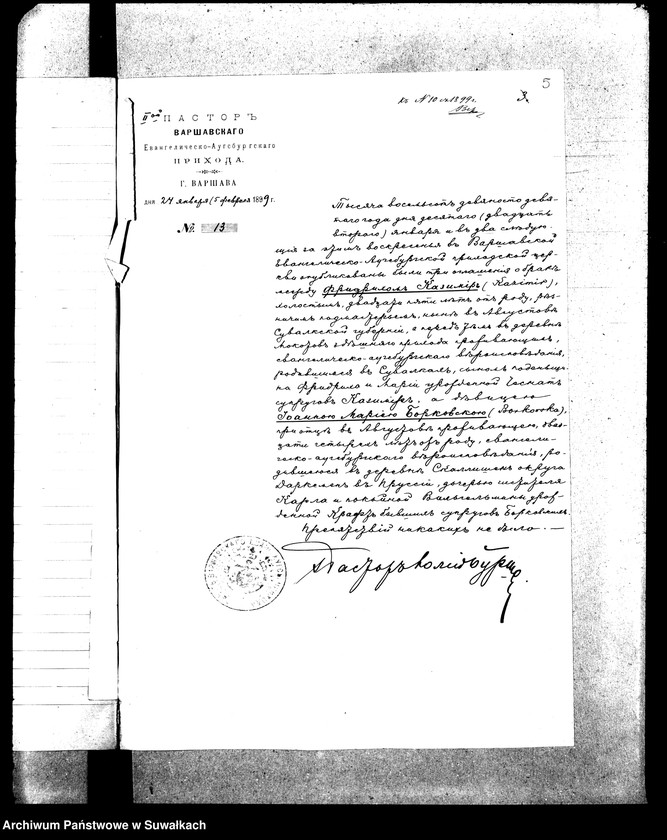 5
къ N 10 за 1899 г.
3.
II ой ПАСТОРЪ
ВАРШАВСКАГО
Евангелическо-Аугсбургскаго
ПРИХОДА.
Г. ВАРШАВА
дня 24 января (5 февраля 1899 г.
№ 13
Тысяча восемьсотъ девяносто девя-
таго года дня десятаго (двадцать
второго) января и въ два слѣдую-
щія за этимъ воскресенья въ Варшавской
Евангелическо-Аугсбургской приходской цер-
кви опубликованы были три оглашенія о бракѣ
между Фридрихомъ Казиміръ (Kazimir),
холостымъ, двадцати пяти лѣтъ отъ роду,
подмастерьемъ, нынѣ въ Августовѣ
Сувалкской губерніи, а передъ тѣмъ въ деревнѣ
Мокотовъ здѣшняго прихода проживающимъ,
евангелическо-аугсбургскаго вѣроисповѣданія,
родившимся въ Сувалкахъ, сыномъ
Фридриха и Маріи урожденной
супруговъ Казиміръ, а дѣвицею
Іоанною Маріею Борковскою (Borkowska),
при отцѣ въ Августовѣ проживающею, двад-
цати четырехъ лѣтъ отъ роду, евангели-
ческо-аугсбургскаго вѣроисповѣданія, ро-
дившеюся въ деревнѣ округа
Даркеменъ въ Пруссіи, дочерью
Карла и покойной Вильгельмины урож-
денной бывшихъ супруговъ Борковскихъ.
Препятствій никакихъ не было. —
Пасторъ
Archiwum Państwowe w Suwałkach